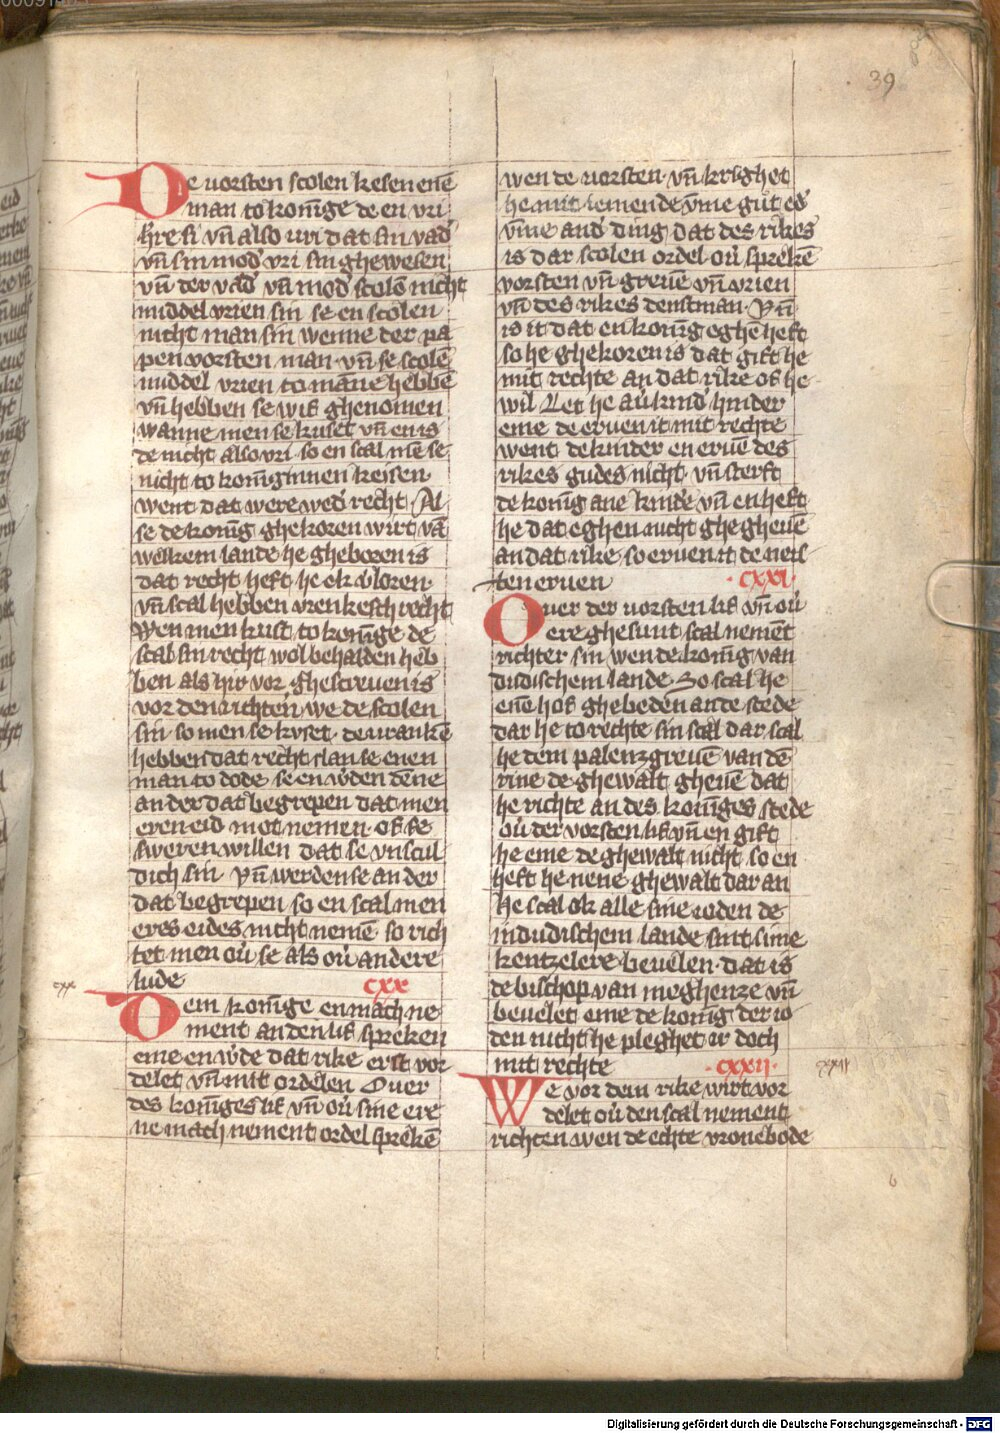 39
De vorsten scolen kesen enē
man to konīge de en vri
hͤre si vn̄ also vri dat sin vad᷑
vn̄ sin mod᷑ vri sin ghewesen
vn̄ der vad᷑ vn̄ mod᷑ scolē nicht
middel vrien sin se en scolen
nicht man sin wenne der pa
pen vorsten man vn̄ se scolē
middel vrien to manne hebbē
vn̄ hebben se wif ghenomen
wanne men se kuset vn̄ en is
de nicht also vri so en scal mē se
nicht to koninginnen keisen
went dat were wed᷑ recht Al
se de konīg ghekoren wirt vā
welkem lande he gheboren is
dat recht heft he ok v᷑loren
vn̄ scal hebben vrenkesch recht
Wen men kust to konīge de
scal sin recht wol behalden heb
ben als hir vor ghescreuen is
vor den richten we de scolen
sin so men se kvset de vrankē
hebben dat recht slan se enen
man to dode se en w᷑den dēne
an der dat begrepen dat men
eren eid mot nemen of se
sweren willen dat se vnscul
dich sin vn̄ werden se an der
dat begrepen so en scal men
eres eides nicht nemē so rich
tet men ou᷑ se als ou᷑ andere
lude cxx
cxx
Dem konīge en mach ne
ment an den lif spreken
eme en w᷑de dat rike erst vor
delet vn̄ mit ordelen Ouer
des konīges lif vn̄ ou᷑ sine ere
ne mach nement ordel sprekē
wen de vorsten vn̄ krighet
he mit iemende v̄me gut ed᷑
v̄me and᷑ ding dat des rikes
is dar scolen ordel ou᷑ sprekē
vorsten vn̄ greuē vn̄ vrien
vn̄ des rikes denstman Vn̄
is it dat en konīg eghē heft
so he ghekoren is dat gift he
mit rechte an dat rike of he
wil Let he au᷑ kind᷑ hinder
eme de eruen it mit rechte
went de kinder en eruē des
rikes gudes nicht vn̄ sterft
de konīg ane kinde vn̄ en heft
he dat eghen nicht ghegheuē
an dat rike so eruen it de neis
ten eruen cxxi
Ouer der vorsten lif vn̄ ou᷑
ere ghesunt scal nemēt
richter sin wen de konīg van
dudischem lande So scal he
enē hof ghebeden an de stede
dar he to rechte sin scal dar scal
he dem palenzgreuē van dē
rine de ghewalt gheuē dat
he richte an des konīges stede
ou᷑ der vorsten lif vn̄ en gift
he eme de ghewalt nicht so en
heft he nene ghewalt dar an
he scal ok alle sine ioden de
in dudischem lande sint sime
kentzelere beuelen dat is
de bischop van meghenze vn̄
beuelet eme de konīg der io
den nicht he pleghet ir doch
mit rechte cxxii
cxxii
We vor dem rike wirt vor
delet ou᷑ den scal nement
richten wen de echte vronebode
Digitalisierung gefördert durch die Deutsche Forschungsgemeinschaft - DFG